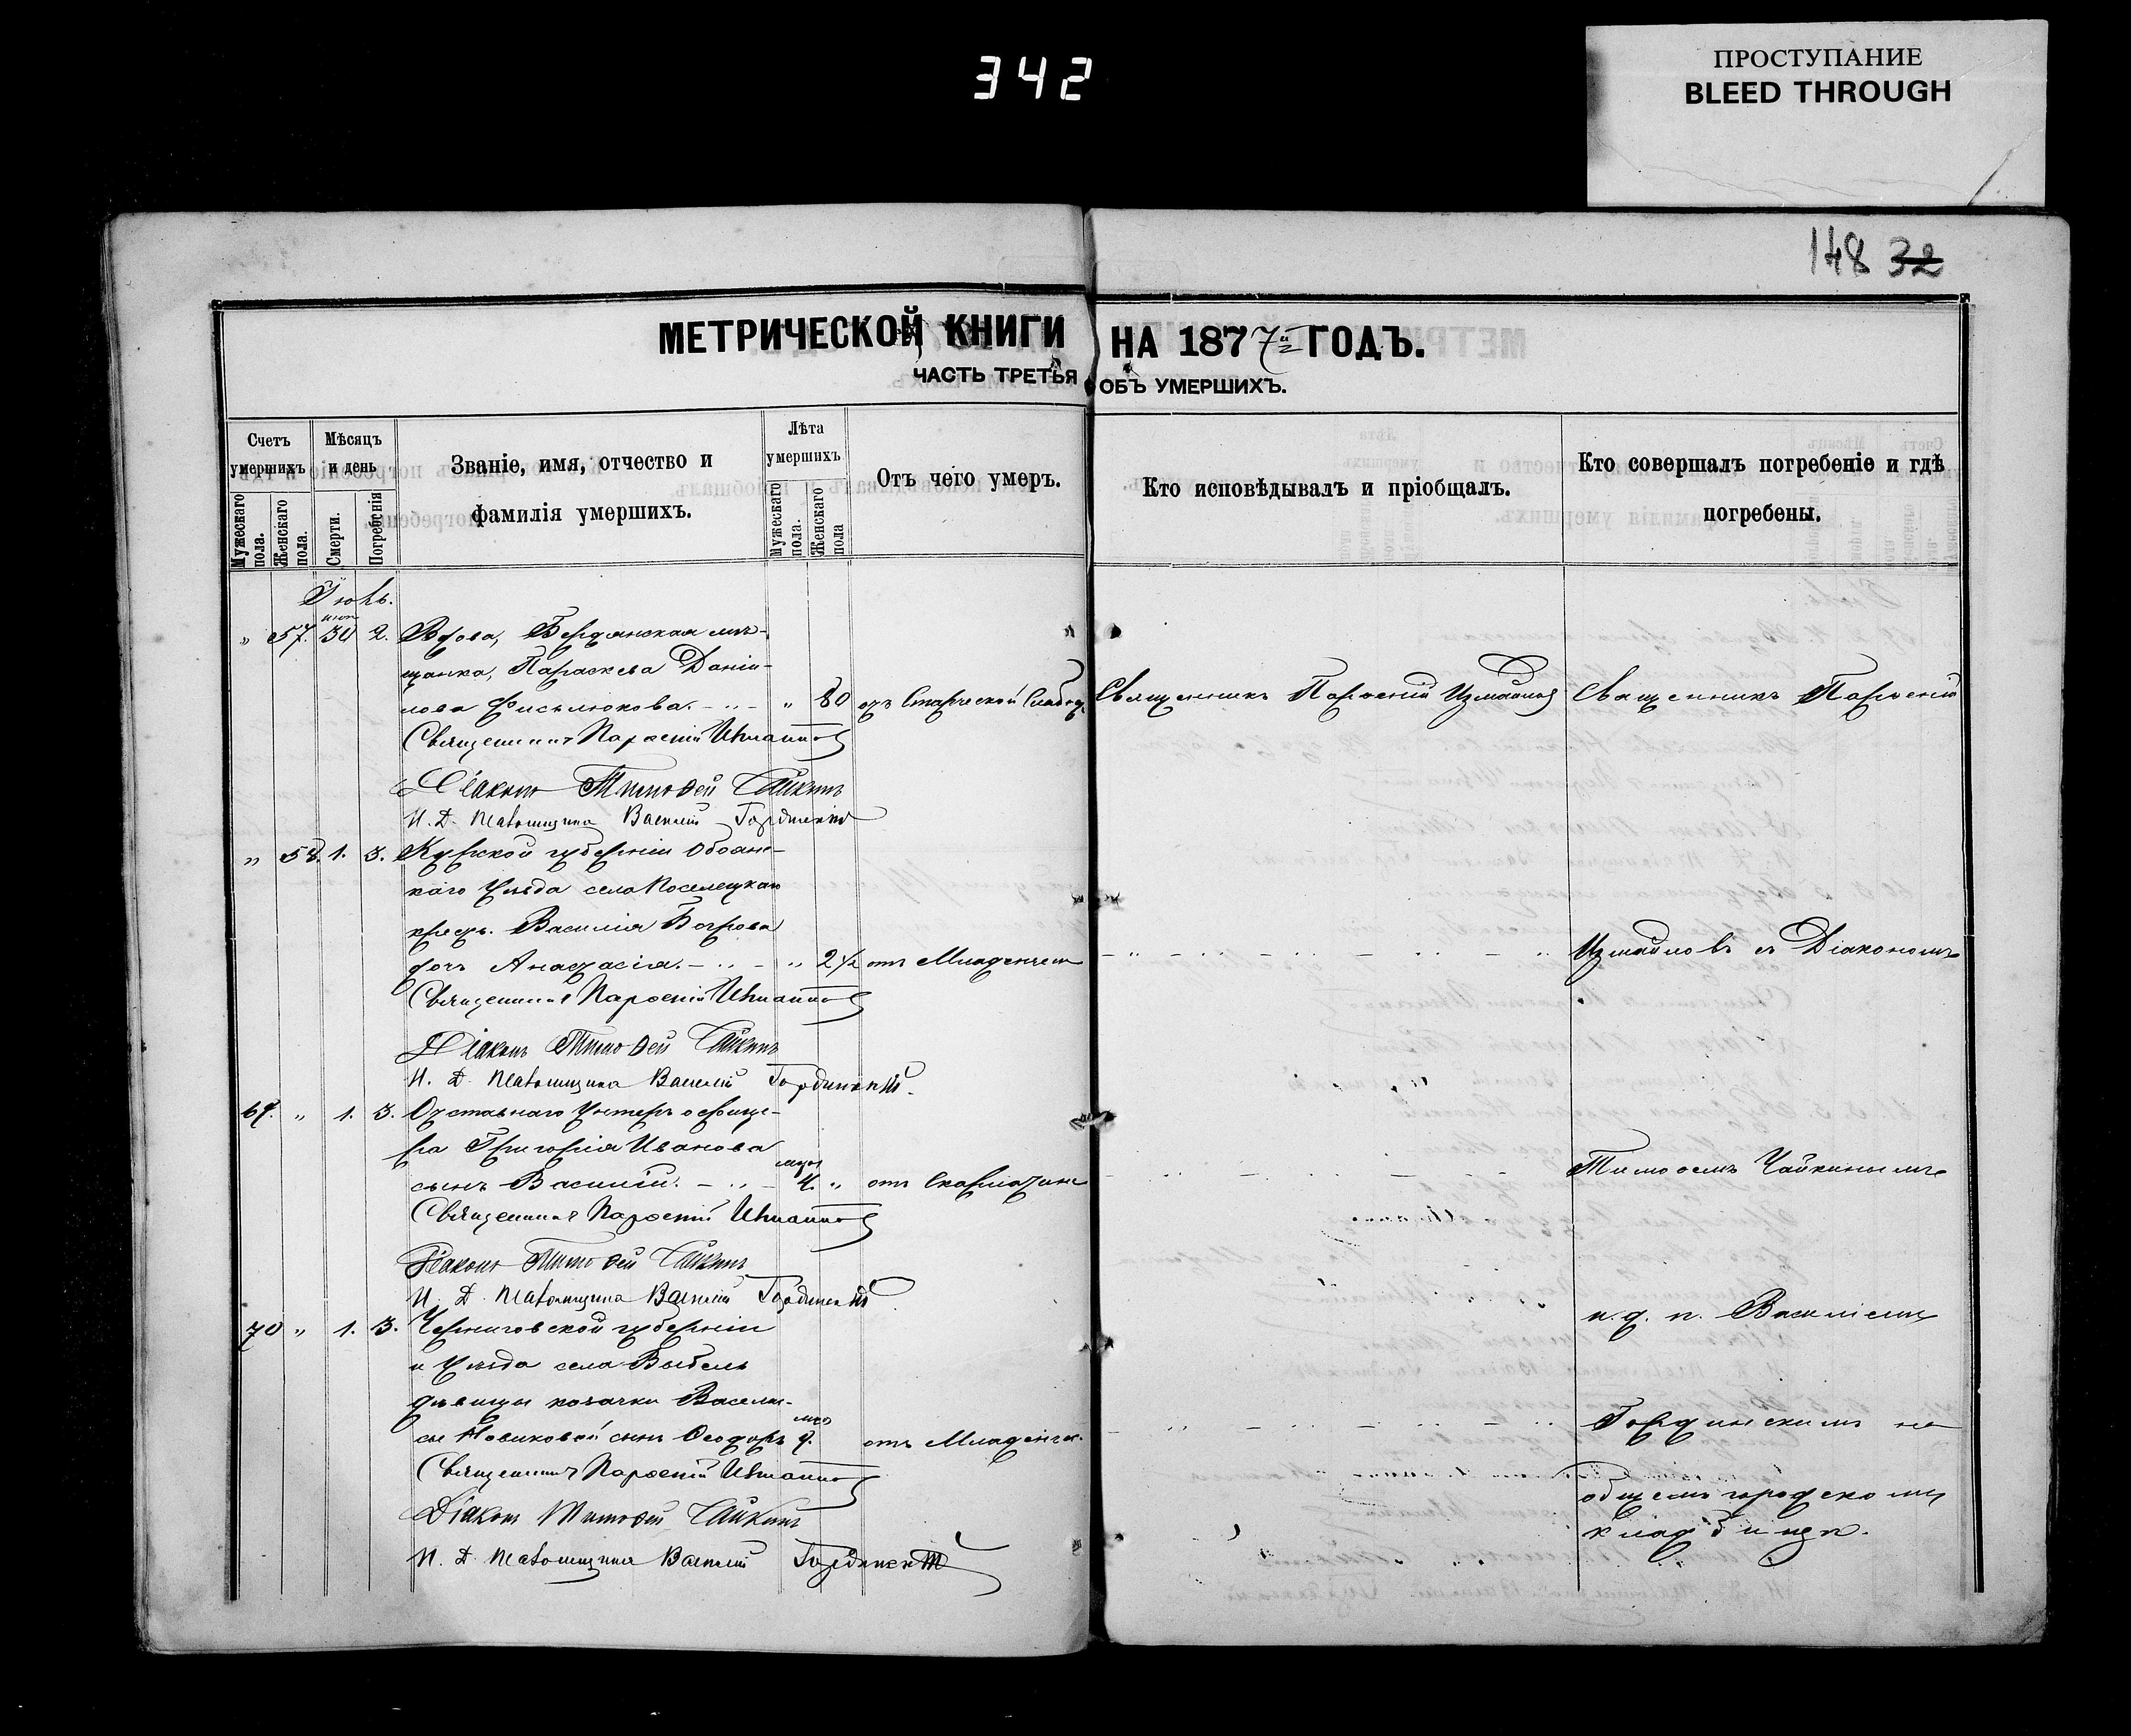 342
ПРОСТУПАНИЕ
BLEED THROUGH
148 32
МЕТРИЧЕСКОЙ КНИГИ НА 1877й ГОДЪ.
ЧАСТЬ ТРЕТЬЯ ОБЪ УМЕРШИХЪ.
Счетъ умершихъ
Мужескаго пола.
Женскаго пола.
Мѣсяцъ и день
Смерти.
Погребенія
Званіе, имя, отчество и
фамилія умершихъ.
Лѣта умершихъ
Мужескаго пола.
Женскаго пола
Отъ чего умеръ.
Кто исповѣдывалъ и пріобщалъ.
Кто совершалъ погребеніе и гдѣ
погребены.
Іюль.
" 57. 30 2. Вдова, Бердянская мѣ-
щанка, Параскева Даніи-
лова - " 80 отъ Старческой Священникъ Парѳеній Измайловъ Священникъ Парѳеній
Священникъ Парѳеній Измайловъ
Діаконъ Тимоѳей Чайкинъ
И. Д. Псаломщика Василій Гординскій
" 58. 1. 3. Курской губерніи Обоянс-
каго Уѣзда села
крест. Василія
дочь Анастасія. - " 2½ отъ Младенчес Измайловъ съ Діакономъ
Священникъ Парѳеній Измайловъ
Діаконъ Тимоѳей Чайкинъ
И. Д. Псаломщика Василій Гординскій
69. " 1. 3. Отставнаго Унтеръ офице-
ра Григорія Иванова
сынъ Василій. - 4. " отъ Скарлатины Тимоѳемъ Чайкинымъ
Священникъ Парѳеній Измайловъ
Діаконъ Тимоѳей Чайкинъ
И. Д. Псаломщика Василій Гординскій
и. д. п. Василіемъ
70 " 1. 3. Черниговской губерніи
и Уѣзда села Выбель
дѣвицы козачки Васили-
сы Новиковой сынъ Ѳеодоръ отъ Младенчес. Гординскимъ на
Священникъ Парѳеній Измайловъ
общемъ городскомъ
Діаконъ Тимоѳей Чайкинъ
кладбищѣ.
И. Д. Псаломщика Василій Гординскій